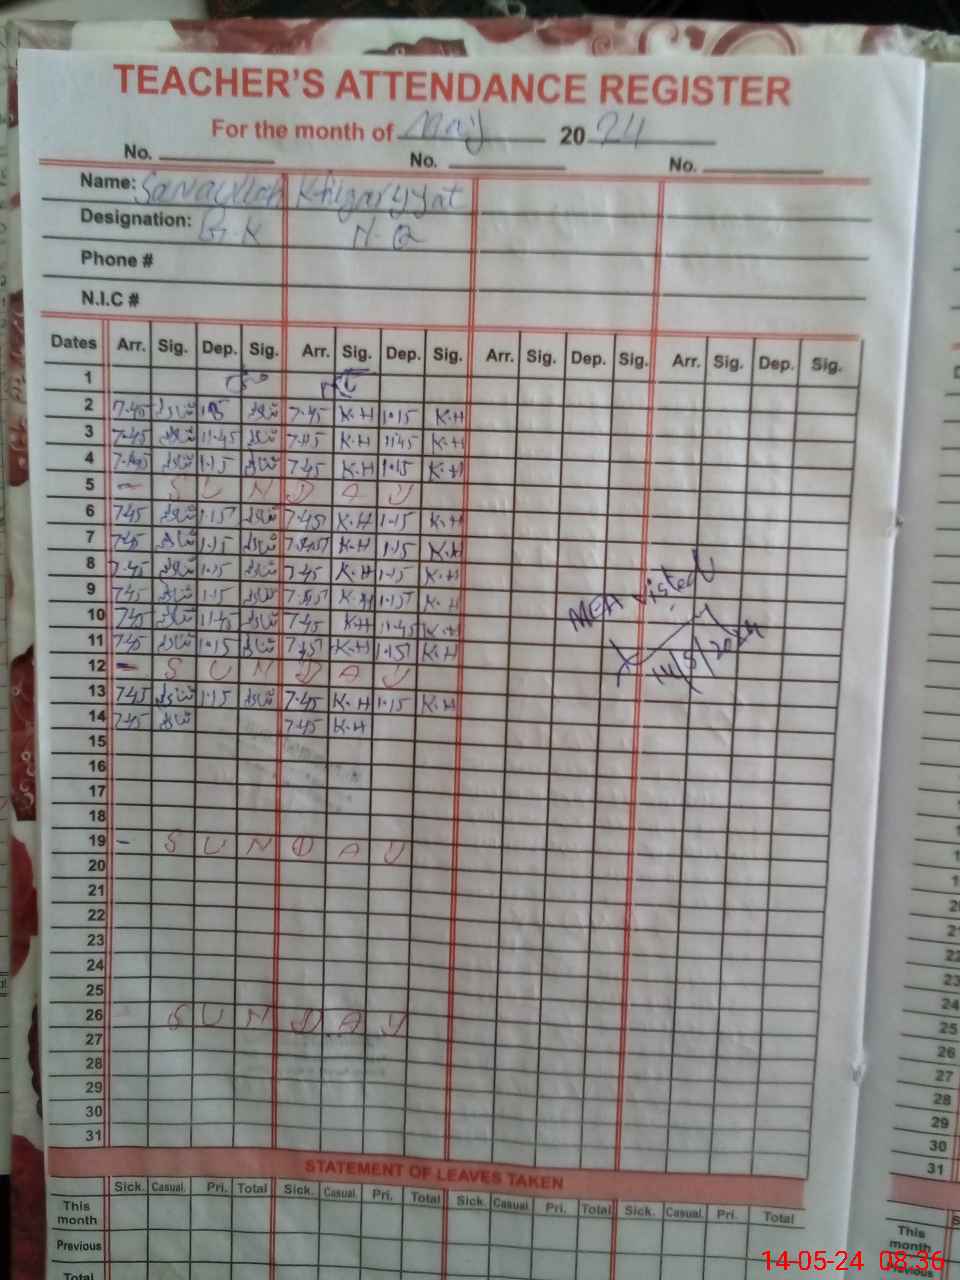 TEACHER'S ATTENDANCE REGISTER
For the month of May 2024
No. No. No.
Name: Sanaullah Khizar
Designation: N-Q
Phone #
N.I.C #
Dates Arr. Sig. Dep. Sig. Arr. Sig. Dep. Sig. Arr. Sig. Dep. Sig. Arr. Sig. Dep. Sig.
1
2 7.45 7.45 K.H 1.15 K.H
3 7.45 11.45 7.45 K.H 11.45 K.H
4 7.45 1.15 7.45 K.H 1.15 K.H
5 - S U N D A Y
6 7.45 1.15 7.45 K.H 1.15 K.H
7 7.45 1.15 7.45 K.H 1.15 K.H
8 7.45 1.15 7.45 K.H 1.15 K.H
9 7.45 1.15 7.45 K.H 1.15 K.H
10 7.45 11.45 7.45 K.H 11.45 K.H
11 7.45 1.15 7.45 K.H 1.15 K.H
12 - S U N D A Y
13 7.45 1.15 7.45 K.H 1.15 K.H
14 7.45 7.45 K.H
MEA visited
14/5/2024
15
16
17
18
19 - S U N D A Y
20
21
22
23
24
25
26 S U N D A Y
27
28
29
30
31
STATEMENT OF LEAVES TAKEN
Sick. Casual. Pri. Total Sick. Casual. Pri. Total Sick. Casual Pri. Total Sick. Casual. Pri. Total
This month
Previous
Total
14-05-24 08:36